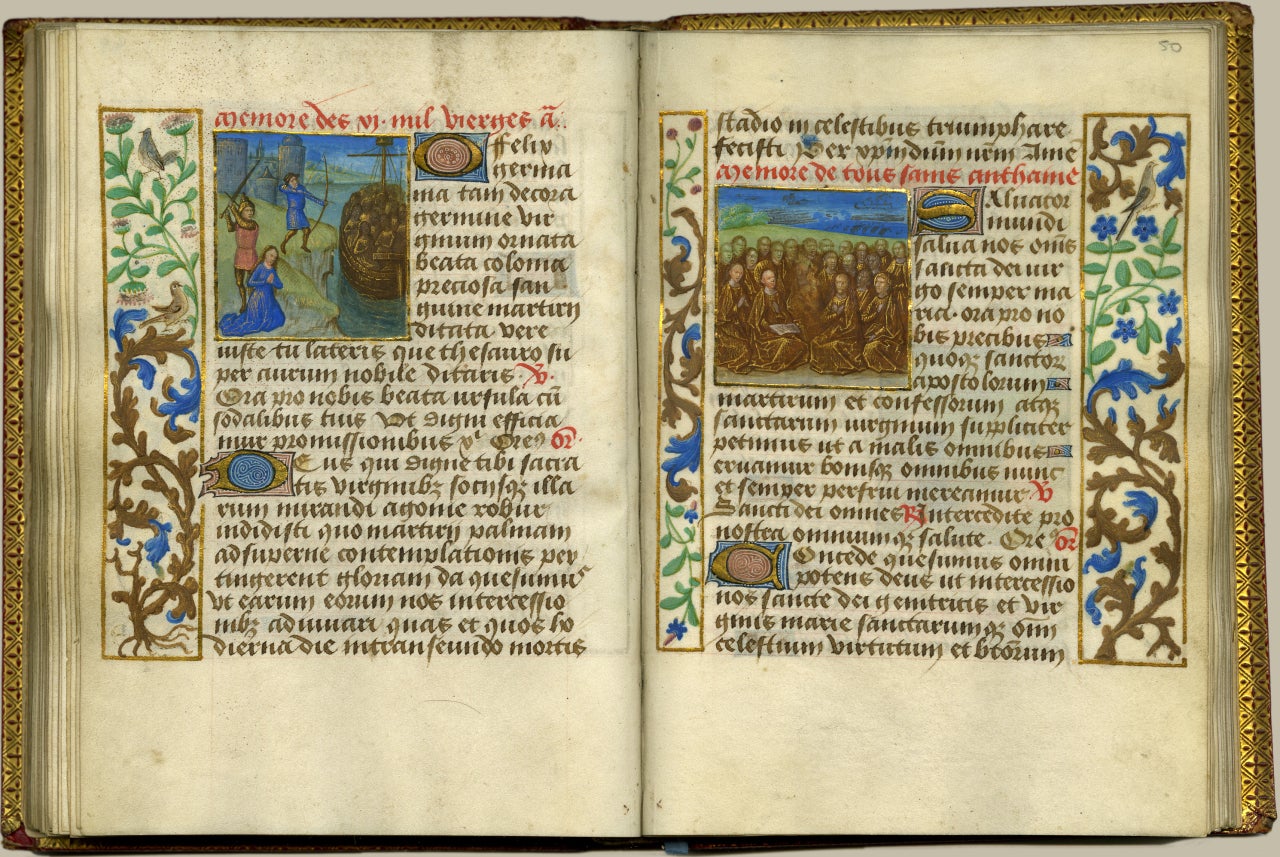 Memore des xi mil vierges añ.
O felix
germa
nia tam decora
germine vir
ginum ornata
beata colonia
preciosa san
guine martirij
ditata vere
iuste tu lateris que thesauro su
per aurum nobile ditaris. V.
Ora pro nobis beata ursula cũ
sodalibus tuis Vt digni efficia
mur promissionibus Ore9 or̃
Deus qui digne tibi sacra
tis virginibꝫ socijsqꝫ illa
rum mirandi agonie robur
indidisti quo martirij palmam
ad superne contemplationis per
tingerent gloriam da quesumus
vt earum eorum nos intercessio
nibꝫ adiuuari quas et quos ho
dierna die in transeundo mortis
50
stadio in celestibus triumphare
fecisti Per xp̃m dñum nr̃m Ame
Memore de tous sains anthaine
Saluator
mundi
salua nos om̃s
sancta dei vir
go semper ma
ria. ora pro no
bis precibus
quoqꝫ sanctoꝝ
apostolorum
martirum et confessorum atqꝫ
sanctarum virginum suppliciter
petimus ut a malis omnibus
eruamur bonisqꝫ omnibus nunc
et semper perfrui mereamur V
Sancti dei omnes R Intercedite pro
nostra omniumqꝫ salute. Ore9 or̃
Concede quesumus omni
potens deus ut intercessio
nos sancte dei genitricis et vir
ginis marie sanctarumqꝫ om̃
celestium virtutum et btõrum